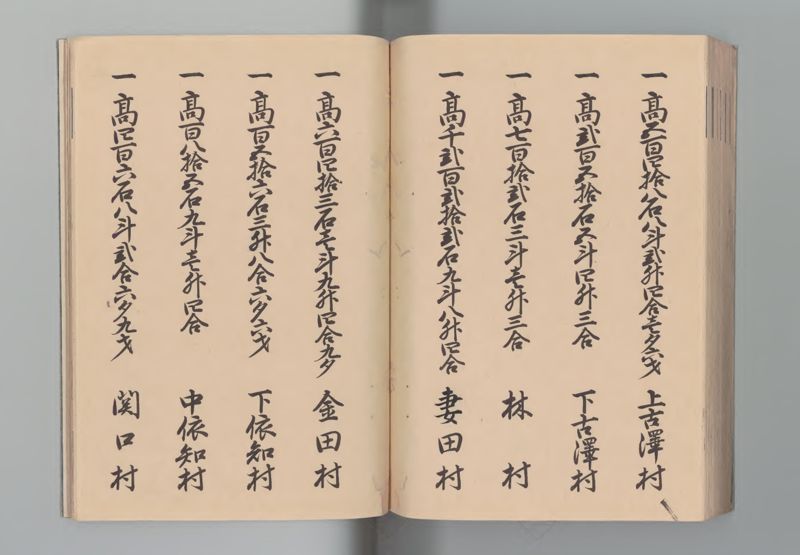 一 高五百四拾八石八斗弐升四合壱夕六才 上古澤村
一 高弐百五拾石五斗四升三合 下古澤村
一 高七百拾弐石三斗壱升三合 林村
一 高千弐百弐拾弐石九斗八升四合 妻田村
一 高六百四拾三石壱斗九升四合九夕 金田村
一 高百五拾六石三升八合六夕六才 下依知村
一 高百八拾五石九斗壱升四合 中依知村
一 高四百六石八斗弐合六夕九才 関口村